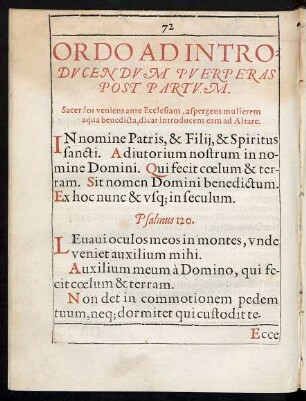 72
ORDO AD INTRO-
DVCENDVM PVERPERAS
POST PARTVM.
Sacerdos veniens ante Ecclesiam, aspergens mulierem
aqua benedicta, dicat introducens eam ad Altare.
IN nomine Patris, & Filij, & Spiritus
sancti. Adiutorium nostrum in no-
mine Domini. Qui fecit cœlum & ter-
ram. Sit nomen Domini benedictum.
Ex hoc nunc & vsq; in seculum.
Psalmus 120.
LEuaui oculos meos in montes, vnde
veniet auxilium mihi.
Auxilium meum à Domino, qui fe-
cit cœlum & terram.
Non det in commotionem pedem
tuum, neq; dormitet qui custodit te.
Ecce